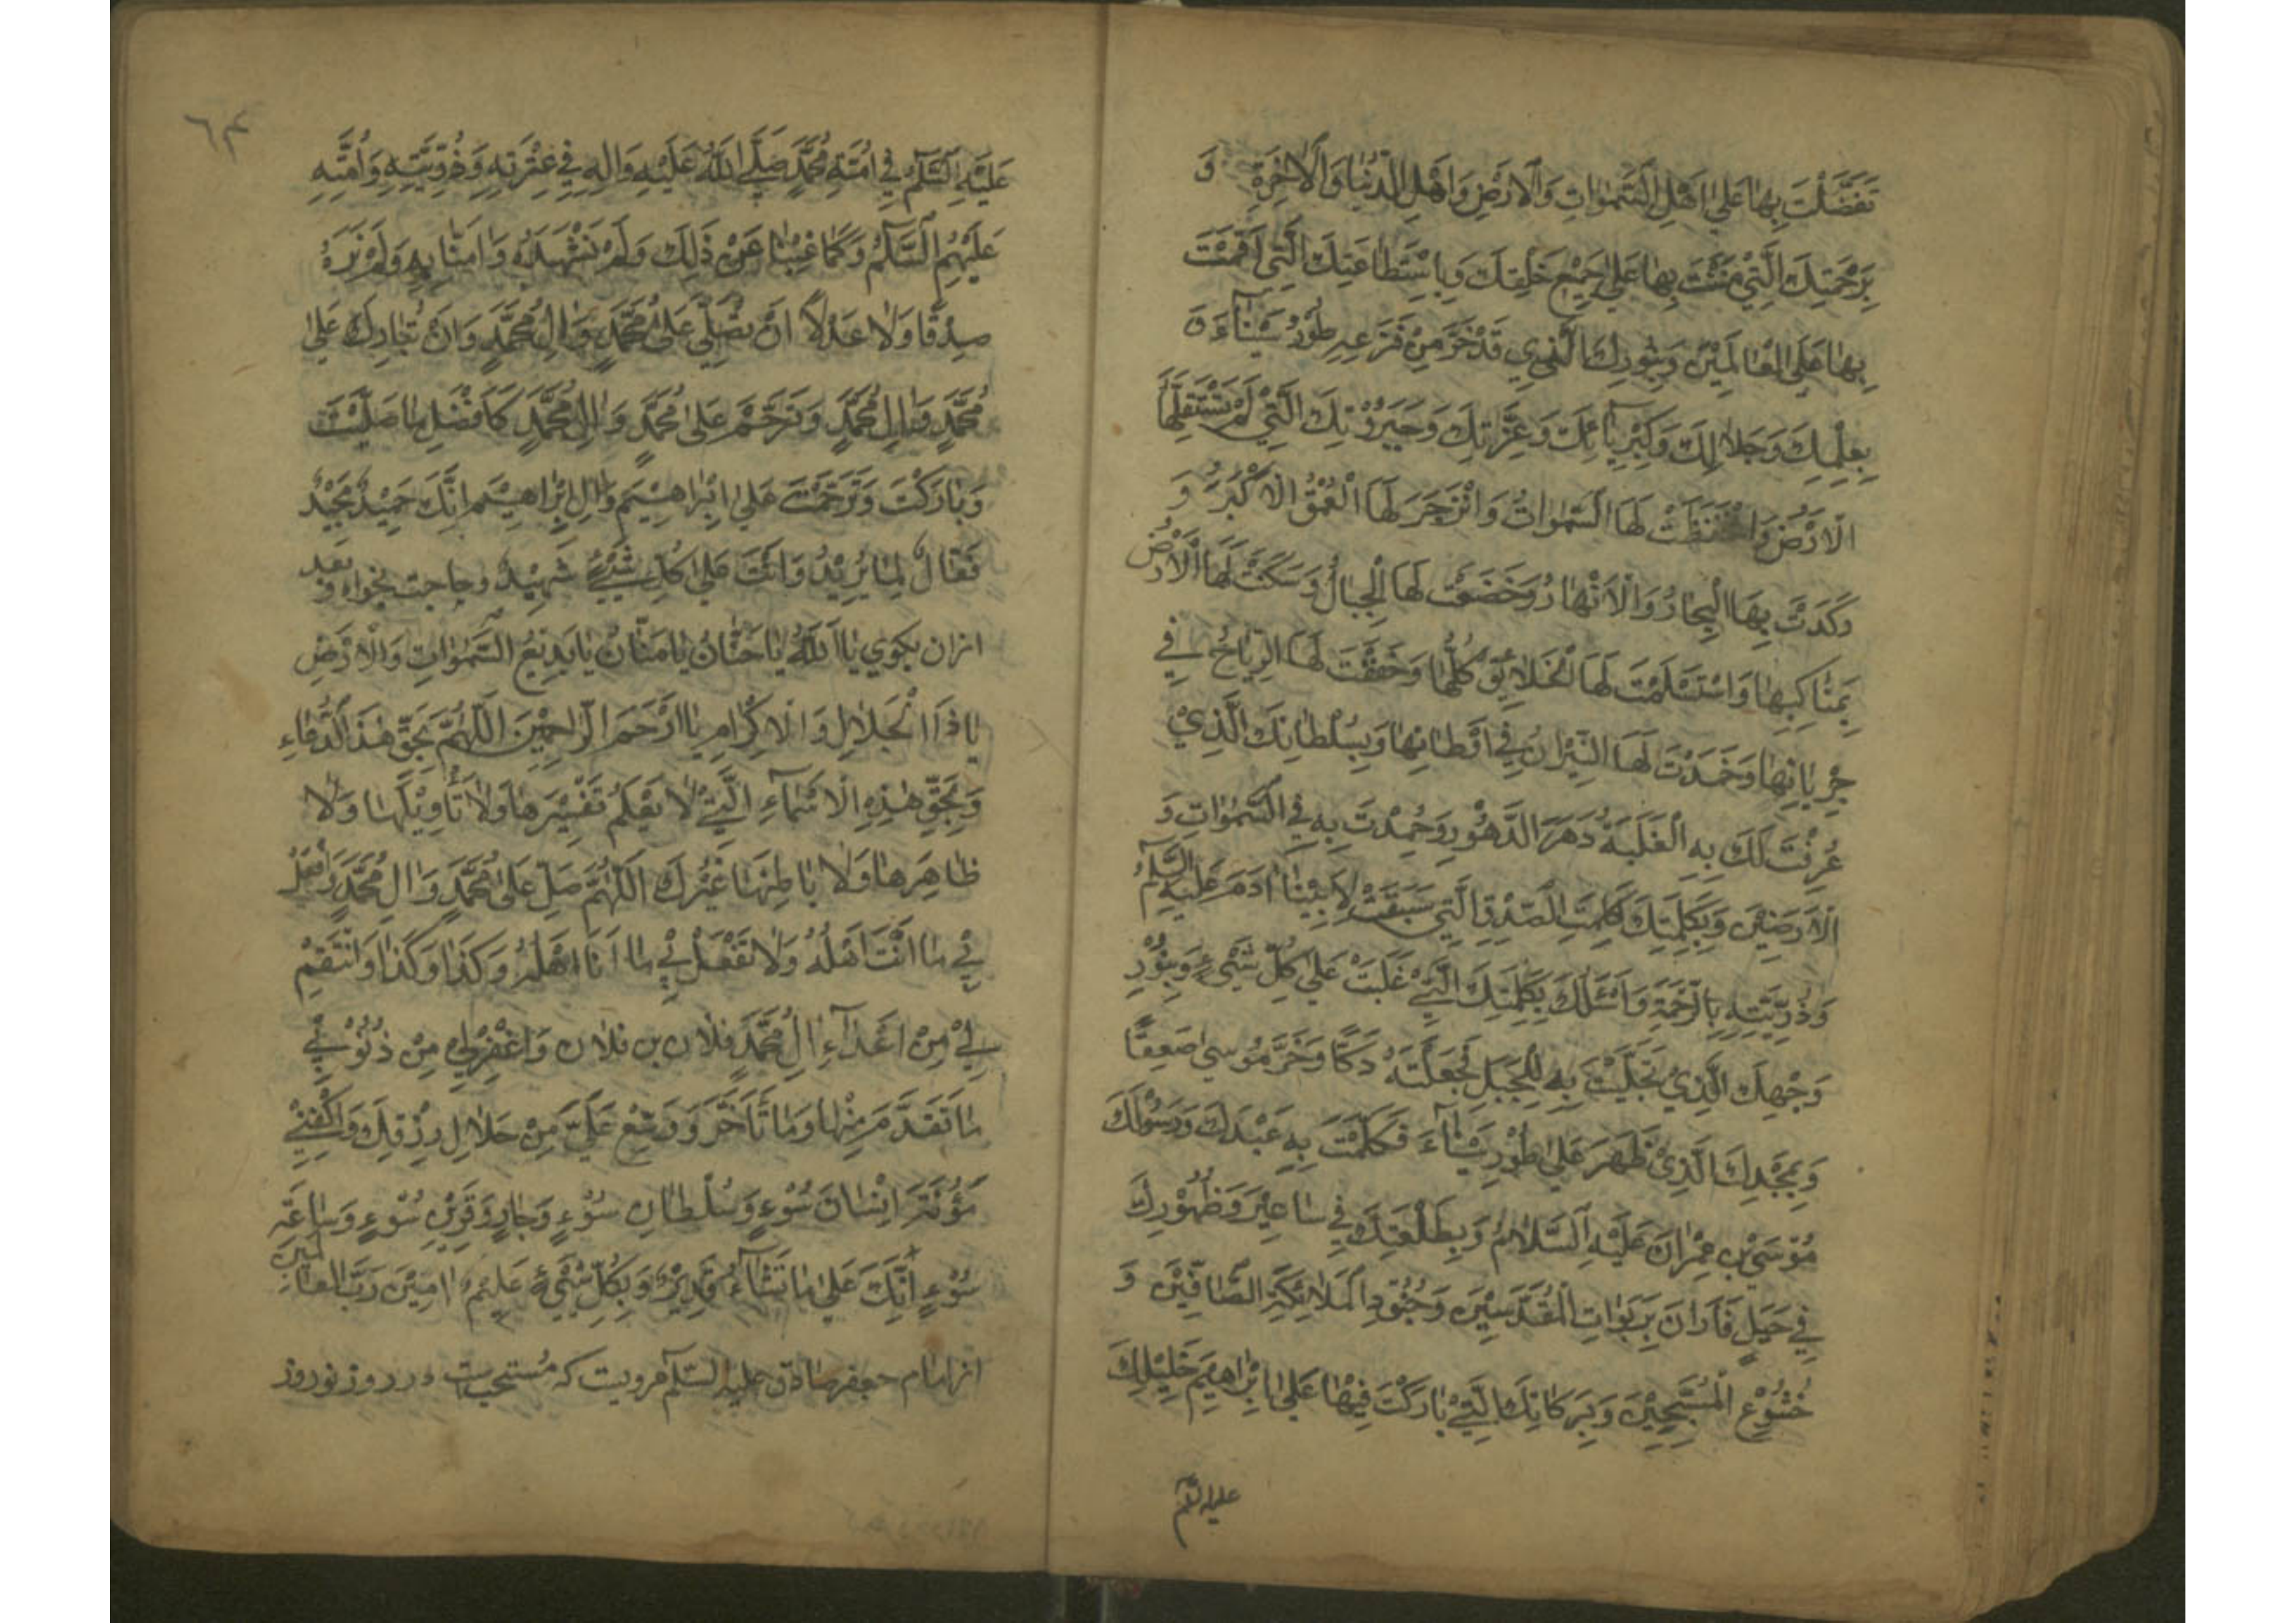 تَفَضَّلْتَ بِهَا عَلَى اَهْلِ السَّمٰوَاتِ وَالْاَرْضِ وَاَهْلِ الدُّنْيَا وَالْاٰخِرَةِ وَ
بِرَحْمَتِكَ الَّتِيْ مَنَنْتَ بِهَا عَلٰى جَمِيْعِ خَلْقِكَ وَبِاسْتِطَاعَتِكَ الَّتِي اَقَمْتَ
بِهَا عَلَى الْعَالَمِيْنَ وَبِنُورِكَ الَّذِي قَدْ خَرَّ مِنْ فَزَعِهِ طُوْرُ سَيْنَآءَ وَ
بِعِلْمِكَ وَجَلَالِكَ وَكِبْرِيَآئِكَ وَعِزَّتِكَ وَجَبَرُوْتِكَ الَّتِيْ لَمْ تَسْتَقِلَّهَا
الْاَرْضُ وَانْخَفَضَتْ لَهَا السَّمٰوَاتُ وَانْزَجَرَ لَهَا الْعُمْقُ الْاَكْبَرُ وَ
رَكَدَتْ بِهَا الْبِحَارُ وَالْاَنْهَارُ وَخَضَعَتْ لَهَا الْجِبَالُ وَسَكَنَتْ لَهَا الْاَرْضُ
بِمَنَاكِبِهَا وَاسْتَسْلَمَتْ لَهَا الْخَلَائِقُ كُلُّهَا وَخَفَقَتْ لَهَا الرِّيَاحُ فِي
جَرَيَانِهَا وَخَمَدَتْ لَهَا النِّيْرَانُ فِي اَوْطَانِهَا وَبِسُلْطَانِكَ الَّذِيْ
عُرِفَتْ لَكَ بِهِ الْغَلَبَةُ دَهْرَ الدُّهُوْرِ وَحُمِدْتَ بِهِ فِي السَّمٰوَاتِ وَ
الْاَرَضِيْنَ وَبِكَلِمَتِكَ كَلِمَةِ الصِّدْقِ الَّتِي سَبَقَتْ لِاَبِيْنَا اٰدَمَ عَلَيْهِ السَّلٰمُ
وَذُرِّيَّتِهِ بِالرَّحْمَةِ وَاَسْئَلُكَ بِكَلِمَتِكَ الَّتِيْ غَلَبَتْ عَلٰى كُلِّ شَيْءٍ وَبِنُوْرِ
وَجْهِكَ الَّذِيْ تَجَلَّيْتَ بِهِ لِلْجَبَلِ فَجَعَلْتَهُ دَكًّا وَخَرَّ مُوْسٰى صَعِقًا
وَبِمَجْدِكَ الَّذِيْ ظَهَرَ عَلٰى طُوْرِ سَيْنَآءَ فَكَلَّمْتَ بِهِ عَبْدَكَ وَرَسُوْلَكَ
مُوْسَى بْنِ عِمْرَانَ عَلَيْهِ السَّلَامُ وَبِطَلْعَتِكَ فِي سَاعِيْرَ وَظُهُوْرِكَ
فِي جَبَلِ فَارَانَ بِرَبَوَاتِ الْمُقَدَّسِيْنَ وَجُنُوْدِ الْمَلَائِكَةِ الصَّآفِّيْنَ وَ
خُشُوْعِ الْمُسَبِّحِيْنَ وَبِبَرَكَاتِكَ الَّتِيْ بَارَكْتَ فِيْهَا عَلٰى اِبْرَاهِيْمَ خَلِيْلِكَ
عليه السّلم
٦٣
عَلَيْهِ السَّلٰمُ فِي اُمَّةِ مُحَمَّدٍ صَلَّى اللّٰهُ عَلَيْهِ وَاٰلِهِ فِي عِتْرَتِهِ وَذُرِّيَّتِهِ وَاُمَّتِهِ
عَلَيْهِمُ السَّلٰمُ وَكَمَا غِبْنَا عَنْ ذٰلِكَ وَلَمْ نَشْهَدْهُ وَاٰمَنَّا بِهِ وَلَمْ نَرَهُ
صِدْقًا وَلَا عَدْلًا اَنْ تُصَلِّيَ عَلٰى مُحَمَّدٍ وَاٰلِ مُحَمَّدٍ وَاَنْ تُبَارِكَ عَلٰى
مُحَمَّدٍ وَاٰلِ مُحَمَّدٍ وَتَرَحَّمَ عَلٰى مُحَمَّدٍ وَاٰلِ مُحَمَّدٍ كَاَفْضَلِ مَا صَلَّيْتَ
وَبَارَكْتَ وَتَرَحَّمْتَ عَلٰى اِبْرَاهِيْمَ وَاٰلِ اِبْرَاهِيْمَ اِنَّكَ حَمِيْدٌ مَجِيْدٌ
فَعَّالٌ لِمَا يُرِيْدُ وَاَنْتَ عَلٰى كُلِّ شَيْءٍ شَهِيْدٌ و حاجت بخواه و بعد
ازان بكوي يَا اَللّٰهُ يَا حَنَّانُ يَا مَنَّانُ يَا بَدِيْعَ السَّمٰوَاتِ وَالْاَرْضِ
يَا ذَا الْجَلَالِ وَالْاِكْرَامِ يَا اَرْحَمَ الرَّاحِمِيْنَ اَللّٰهُمَّ بِحَقِّ هٰذَا الدُّعَاءِ
وَبِحَقِّ هٰذِهِ الْاَسْمَآءِ الَّتِيْ لَا يَعْلَمُ تَفْسِيْرَهَا وَلَا تَأْوِيْلَهَا وَلَا
ظَاهِرَهَا وَلَا بَاطِنَهَا غَيْرُكَ اَللّٰهُمَّ صَلِّ عَلٰى مُحَمَّدٍ وَاٰلِ مُحَمَّدٍ وَافْعَلْ
بِيْ مَا اَنْتَ اَهْلُهُ وَلَا تَفْعَلْ بِيْ مَا اَنَا اَهْلُهُ وَكَذَا وَكَذَا وَانْتَقِمْ
لِيْ مِنْ اَعْدَآءِ اٰلِ مُحَمَّدٍ فلان بن فلان وَاغْفِرْ لِيْ مِنْ ذُنُوْبِيْ
مَا تَقَدَّمَ مِنْهَا وَمَا تَأَخَّرَ وَوَسِّعْ عَلَيَّ مِنْ حَلَالِ رِزْقِكَ وَاكْفِنِيْ
مَؤُنَةَ اِنْسَانِ سُوْءٍ وَسُلْطَانِ سُوْءٍ وَجَارِ وَقَرِيْنِ سُوْءٍ وَسَاعَةِ
سُوْءٍ اِنَّكَ عَلٰى مَا تَشَآءُ قَدِيْرٌ وَبِكُلِّ شَيْءٍ عَلِيْمٌ اٰمِيْنَ رَبَّ الْعَالَمِيْنَ
از امام جعفر صادق عليه السّلم مرويست كه مستحب است در روز نوروز